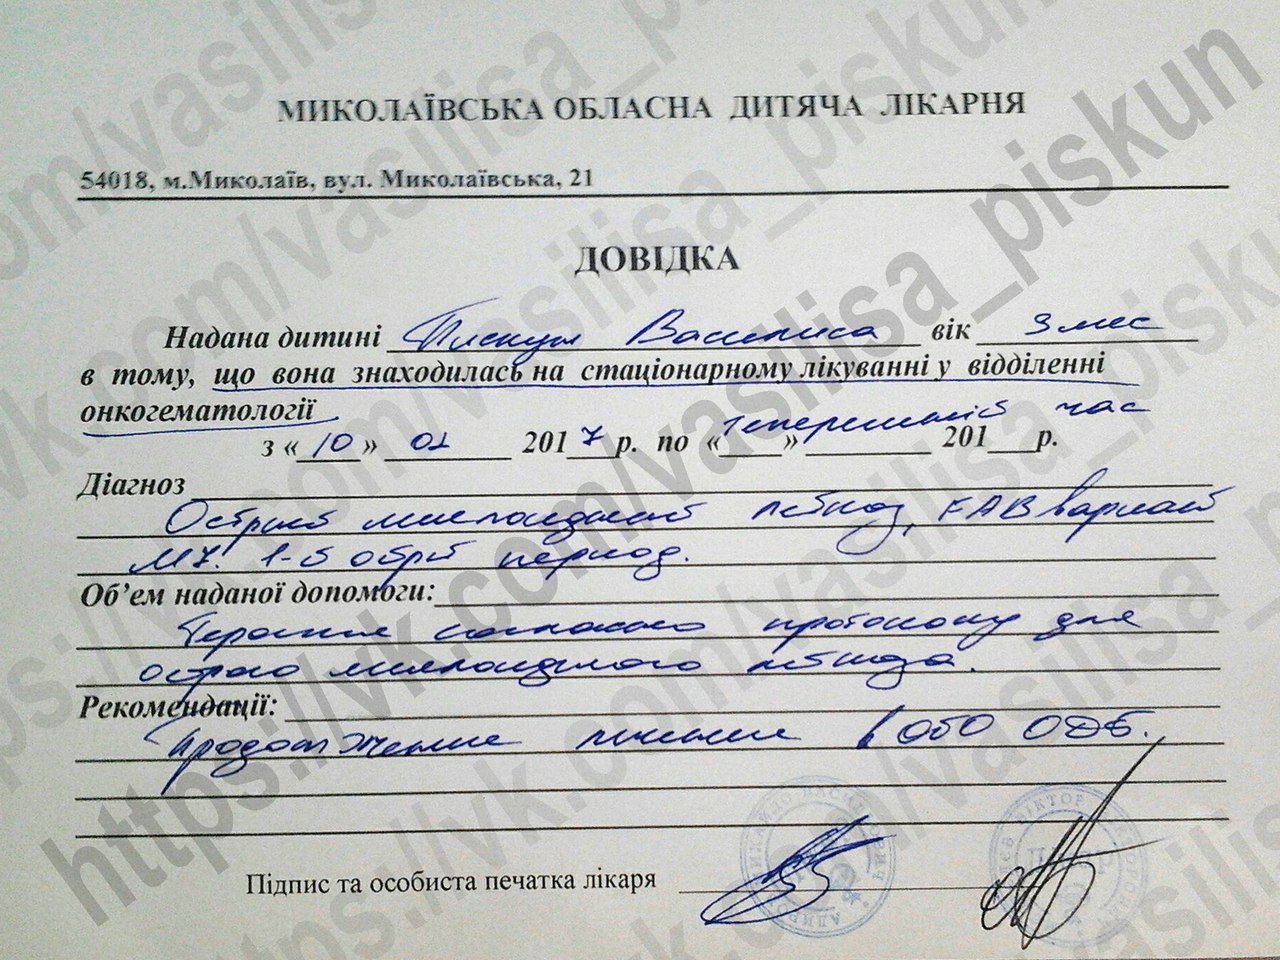 МИКОЛАЇВСЬКА ОБЛАСНА ДИТЯЧА ЛІКАРНЯ
54018, м.Миколаїв, вул. Миколаївська, 21
ДОВІДКА
Надана дитині Пискун Василиса вік 3 мес
в тому, що вона знаходилась на стаціонарному лікуванні у відділенні
онкогематології
з «10» 01 2017р. по «теперешній час» 201 р.
Діагноз
Острый миелоидный лейкоз, FAB вариант
M7. 1-й острый период.
Об’ем наданої допомоги:
Терапия согласно протоколу для
острого миелоидного лейкоза.
Рекомендації:
Продолжение лечения в ОДБ.
Підпис та особиста печатка лікаря
https://vk.com/vasilisa_piskun